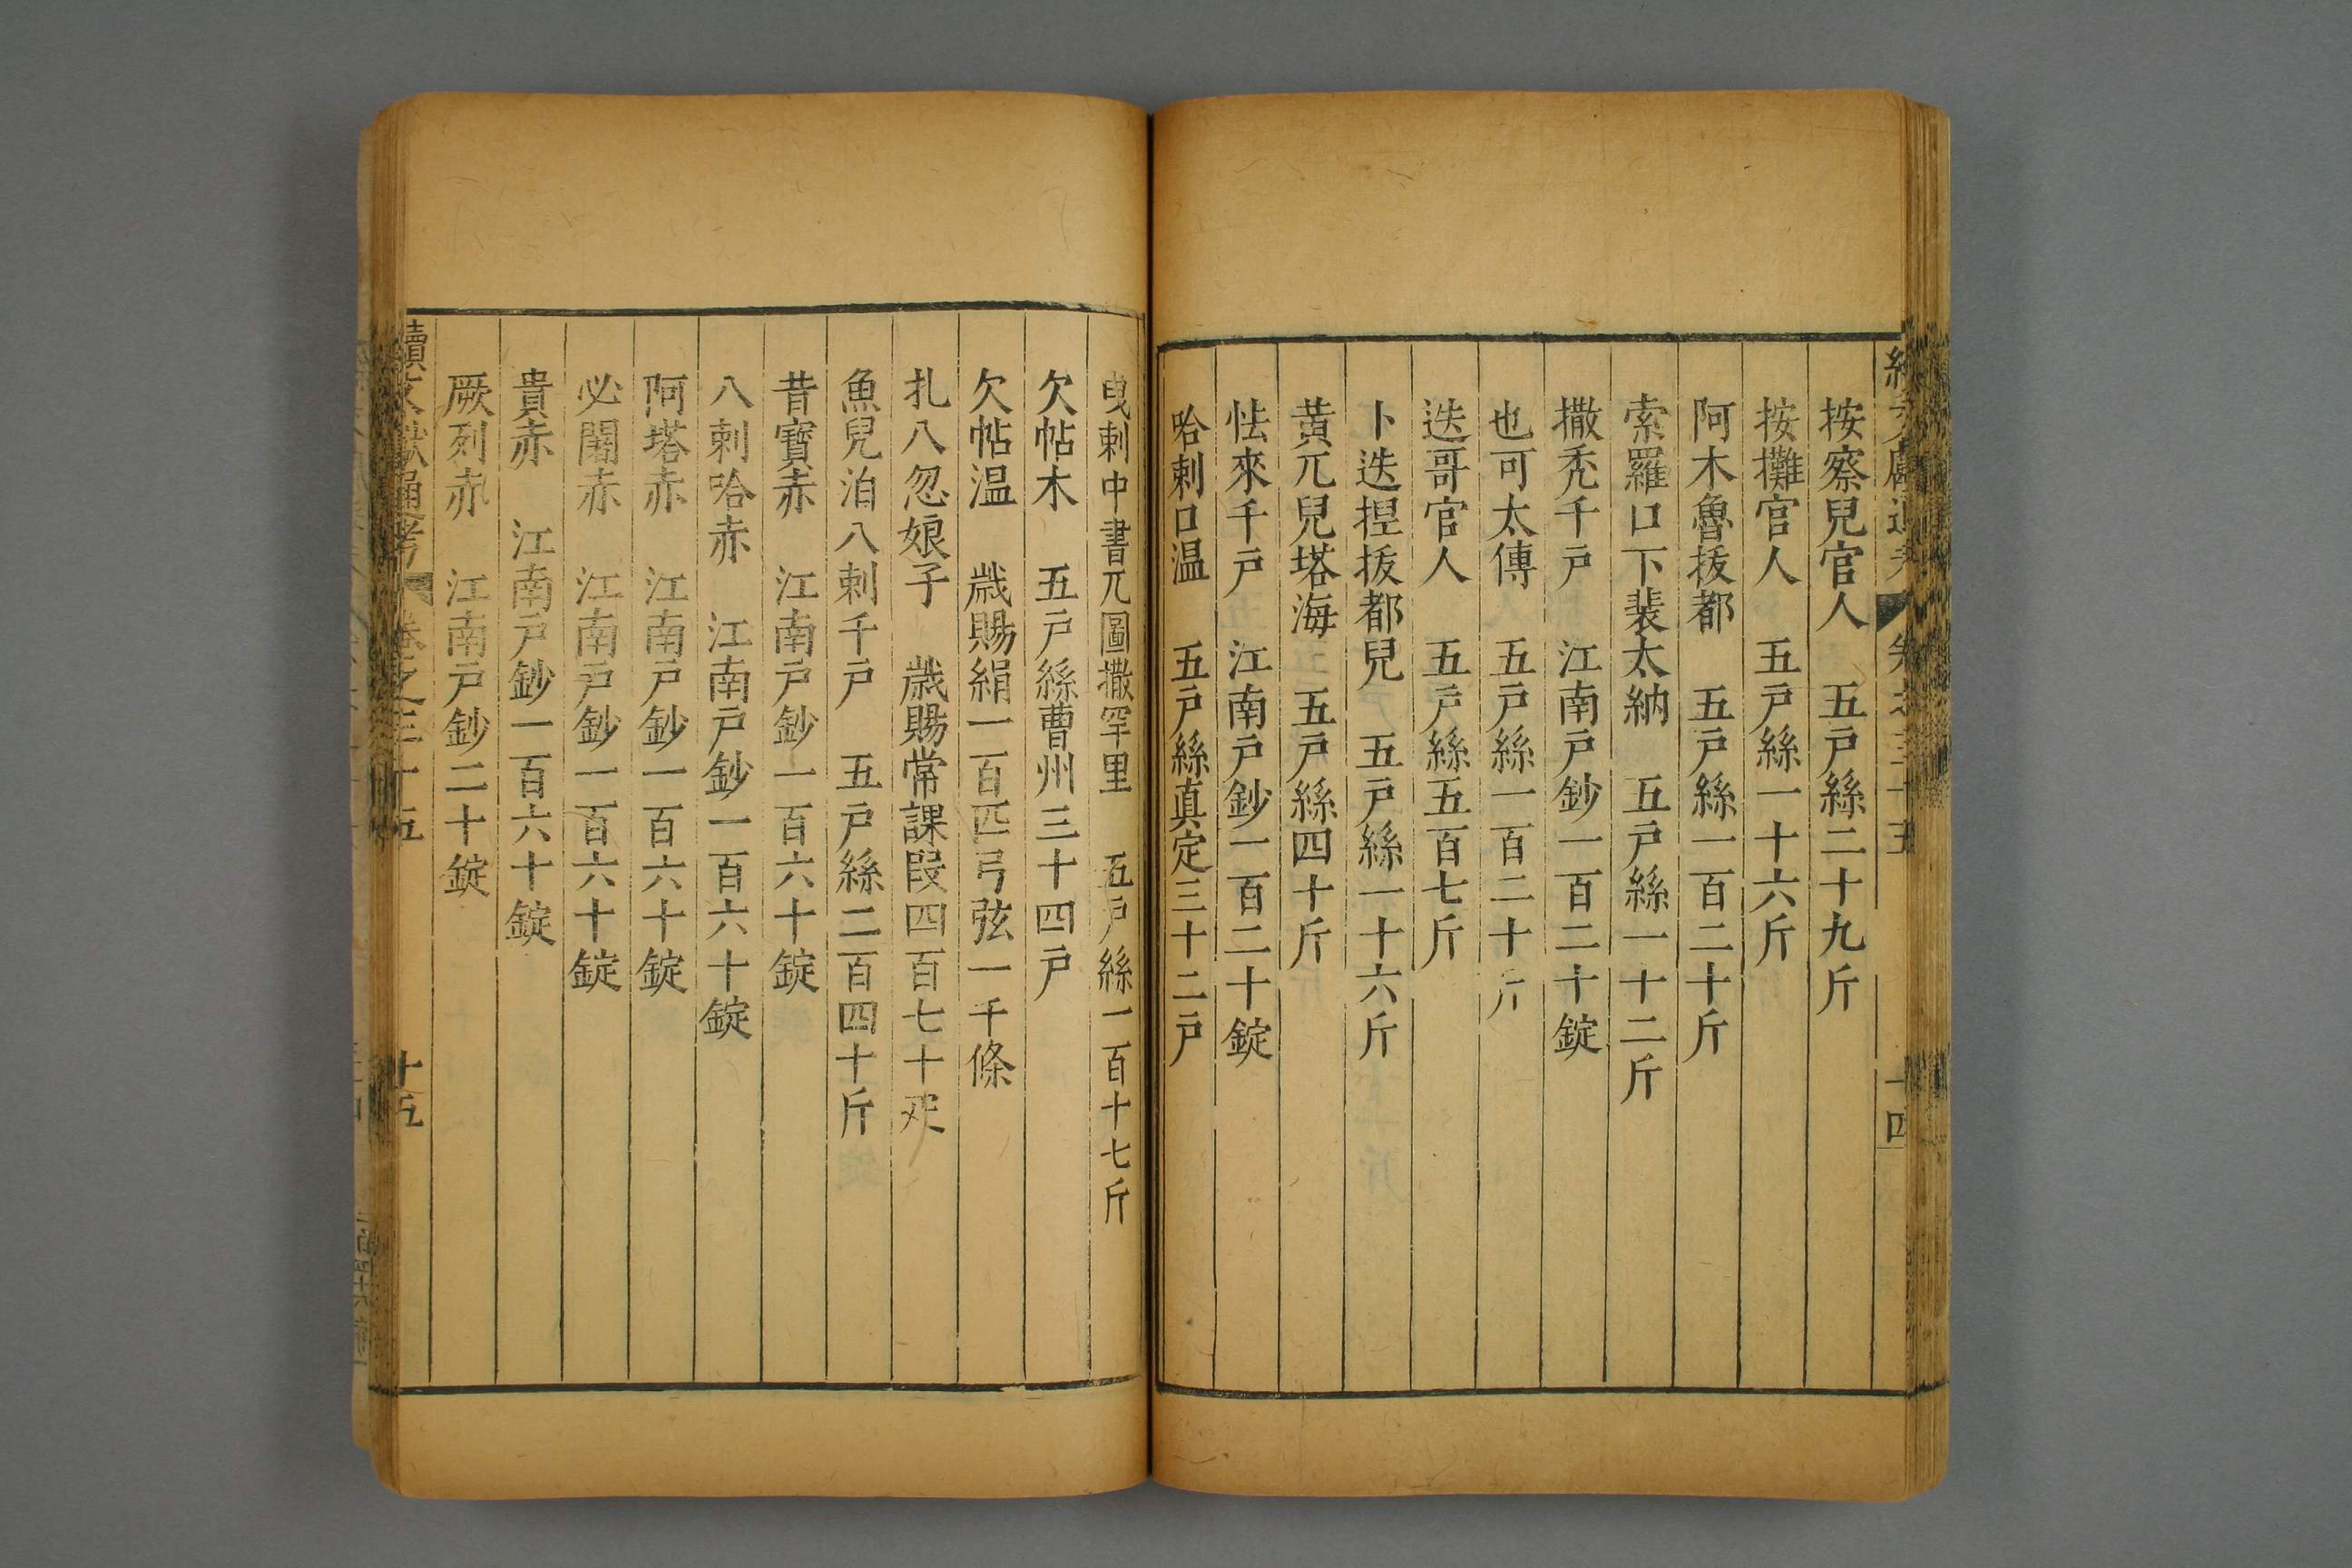 按察兒官人　五戸絲二十九斤
按攤官人　五戸絲一十六斤
阿木魯拔都　五戸絲一百二十斤
索羅口下裴太納　五戸絲一十二斤
撒禿千戸　江南戸鈔一百二十錠
也可太傅　五戸絲一百二十斤
迭哥官人　五戸絲五百七斤
卜迭捏拔都兒　五戸絲一十六斤
黃兀兒塔海　五戸絲四十斤
怯來千戸　江南戸鈔一百二十錠
哈剌口温　五戸絲真定三十二戸
曳剌中書兀圖撒罕里　五戸絲一百十七斤
欠帖木　五戸絲曹州三十四戸
欠帖温　歳賜絹一百匹弓弦一千條
扎八忽娘子　歳賜常課段四百七十疋
魚兒泊八剌千戸　五戸絲二百四十斤
昔寶赤　江南戸鈔一百六十錠
八剌哈赤　江南戸鈔一百六十錠
阿塔赤　江南戸鈔一百六十錠
必闍赤　江南戸鈔一百六十錠
貴赤　江南戸鈔一百六十錠
厥列赤　江南戸鈔二十錠
續文獻通考　卷之三十五　十五